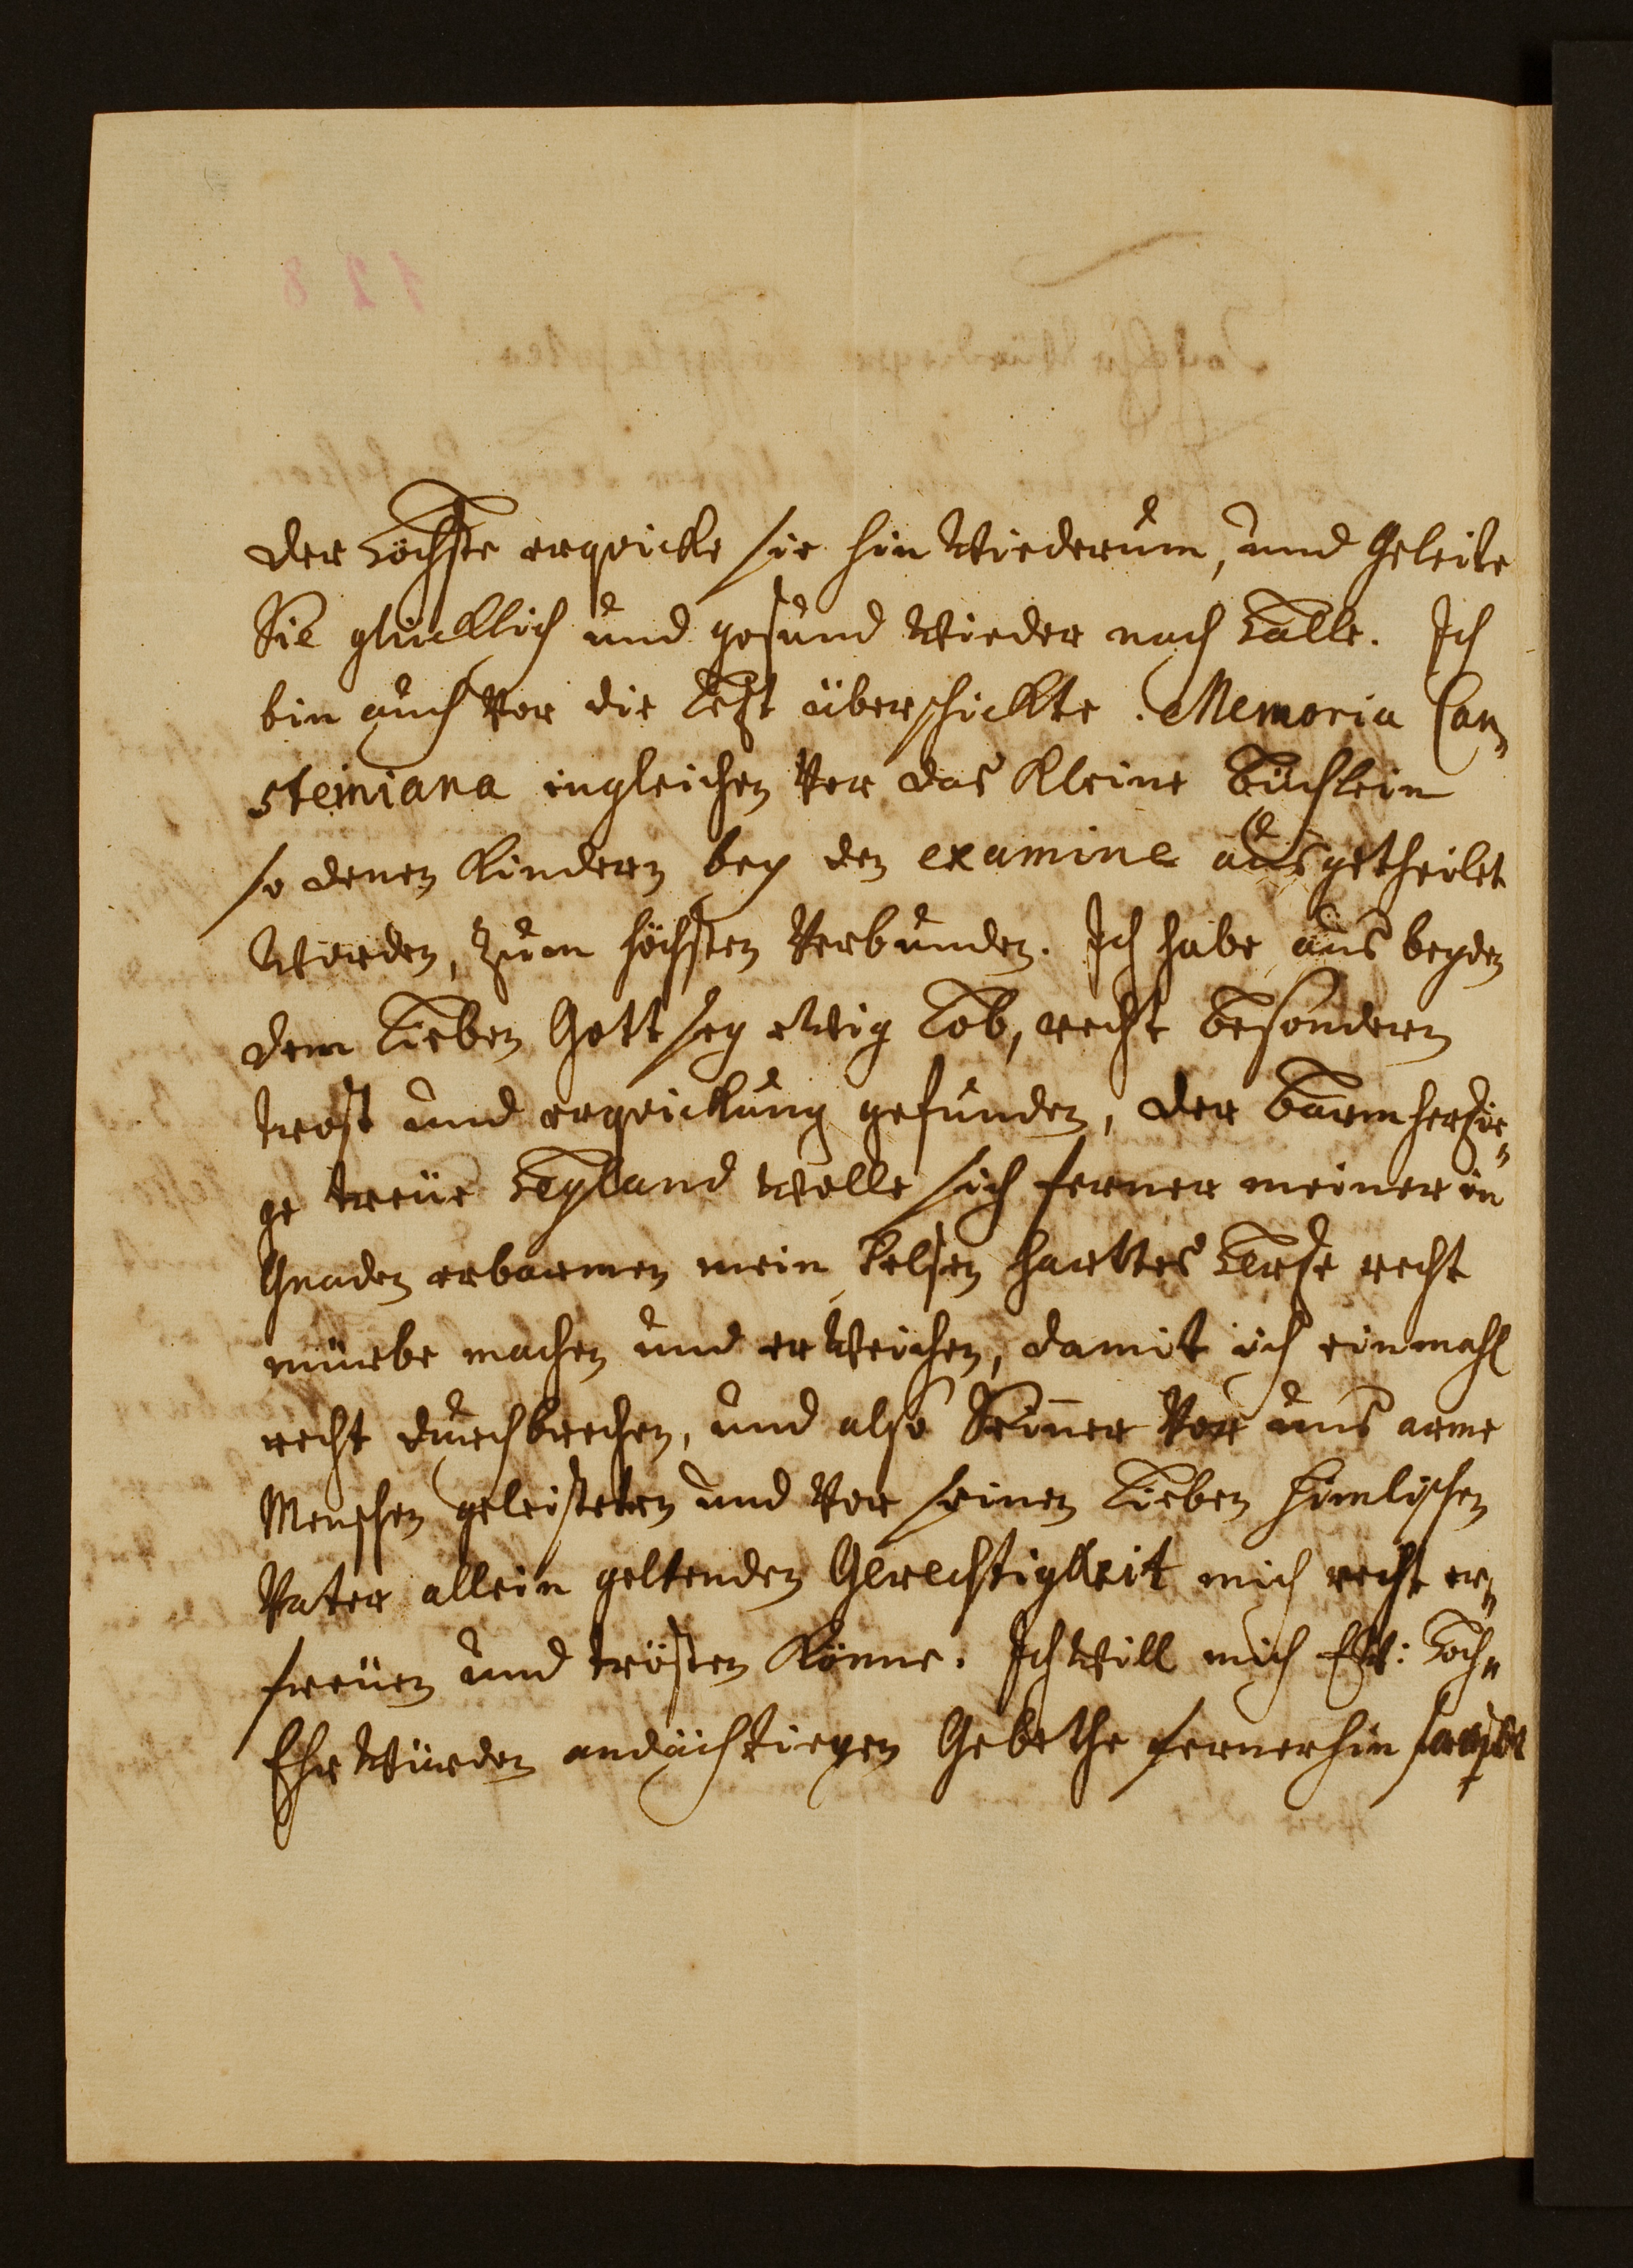 der Höchste erqvicke sie hin wiederum, und geleite
Sie glücklich und gesund wieder nach Halle. Ich
bin auch vor die letzt überschickte Memoria Can„
steiniana ingleichen vor das kleine Büchlein
so denen Kindern bey den examine ausgetheilet
worden, zum höchsten verbunden. Ich habe aus beyden
dem lieben Gott sey ewig Lob, recht besondern
trost und erqvickung gefunden, der barmhertzi„
ge treüe Heyland wolle sich ferner meiner in
Gnaden erbarmen mein felsen harttes Hertze recht
mürbe machen und erweichen, damit ich einmahl
recht durchbrechen, und also Seiner vor uns arme
Menschen geleisteten und vor seinen lieben himlischen
Vater allein geltenden Gerechtigkeit mich recht er„
freüen und trösten könne. Ich will mich Ew: Hoch„
Ehrwürden andächtiegen Gebethe fernerhin